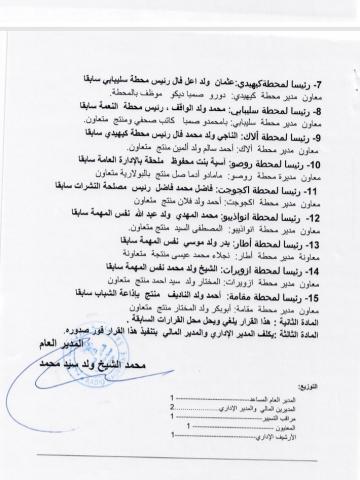 7- رئيسا لمحطة كيهيدي: عثمان ولد اعل فال رئيس محطة سليبابي سابقا
معاون مدير محطة كيهيدي: دورو صمبا ديكو موظف بالمحطة.
8- رئيسا لمحطة سليبابي: محمد ولد الواقف ، رئيس محطة النعمة سابقا
معاون مدير محطة سليبابي: بامحمدو صمبا كاتب صحفي ومنتج متعاون.
9- رئيسا لمحطة ألاك: الناجي ولد محمد فال رئيس محطة كيهيدي سابقا
معاون مدير محطة ألاك: أحمد سالم ولد ألمين منتج متعاون
10- رئيسا لمحطة روصو: آسية بنت محفوظ ملحقة بالإدارة العامة سابقا
معاون مديرة محطة روصو: مامادو آدما صل منتج بالبولارية متعاون
11- رئيسا لمحطة اكجوجت: فاضل محمد فاضل رئيس مصلحة النشرات سابقا
معاون مدير محطة اكجوجت: أحمد ولد فلان منتج متعاون
12- رئيسا لمحطة انواذيبو: محمد المهدي ولد عبد الله نفس المهمة سابقا
معاون مدير محطة انواذيبو: المصطفى السيد منتج متعاون.
13- رئيسا لمحطة أطار: بدر ولد موسي نفس المهمة سابقا
معاونة مدير محطة أطار: نجلاء محمد عيسى منتجة متعاونة
14- رئيسا لمحطة ازويرات: الشيخ ولد محمد نفس المهمة سابقا
معاون مدير محطة ازويرات: المختار ولد سيد احمد منتج متعاون
15- رئيسا لمحطة مقامة: أحمد ولد الناديف منتج بإذاعة الشباب سابقا
معاون مدير محطة مقامة: أبوبكر ولد المختار منتج متعاون
المادة الثانية : هذا القرار يلغي ويحل محل القرارات السابقة .
المادة الثالثة :يكلف المدير الإداري والمدير المالي بتنفيذ هذا القرار فور صدوره.
المدير العام
محمد الشيخ ولد سيد محمد
التوزيع:
المدير العام المساعد 1
المديرين المالي والمدير الإداري 2
مراقب التسيير 1
المعنيون 1
الأرشيف الإداري 1